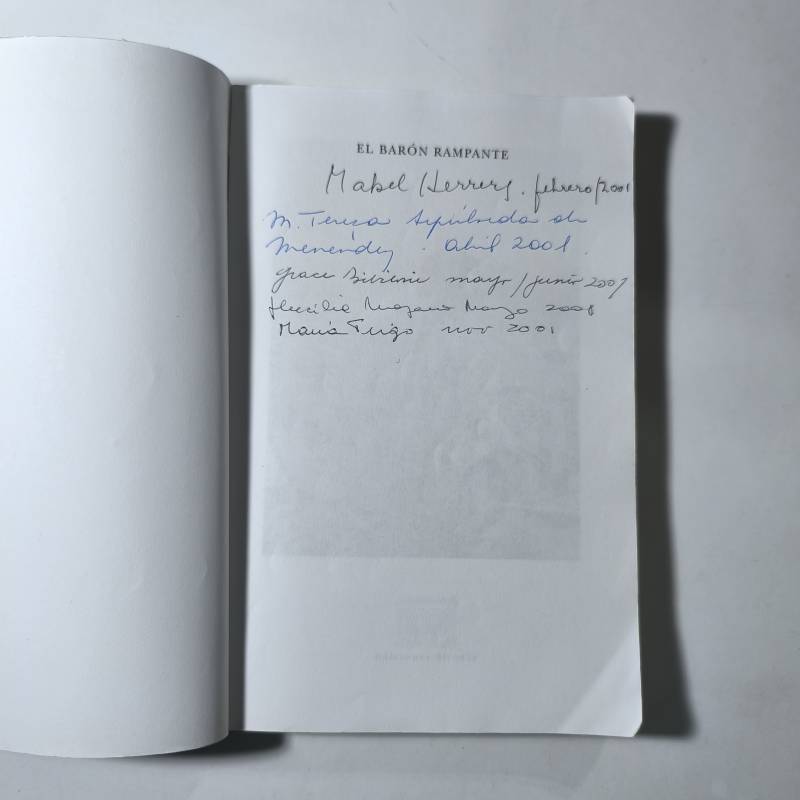 EL BARÓN RAMPANTE
Mabel Herrera. febrero/2001
M. Teresa Sepúlveda de
Menéndez. abril 2001.
Grace mayo/junio 2001
Mayo 2001
María Trigo nov 2001